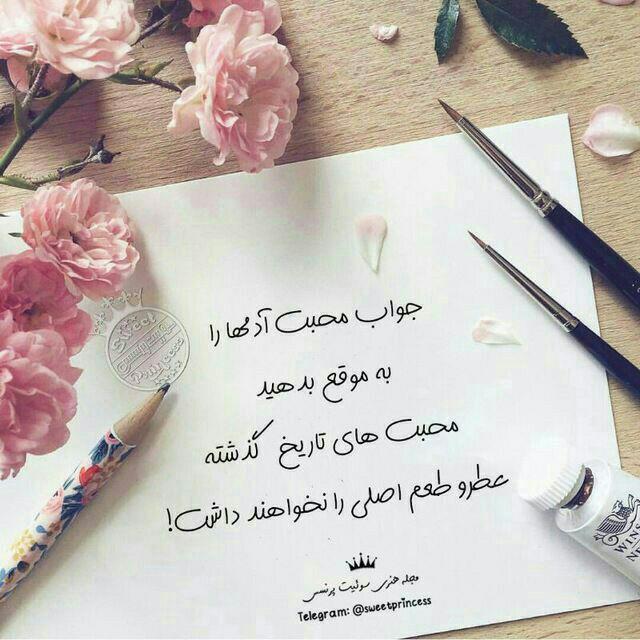 جواب محبت آدمها را
به موقع بدهید
محبت های تاریخ گذشته
عطرو طعم اصلی را نخواهند داشت!
مجله هنری سوئیت پرنسس
Telegram: @sweetprincess
Sweet
Princess
WINS
NE